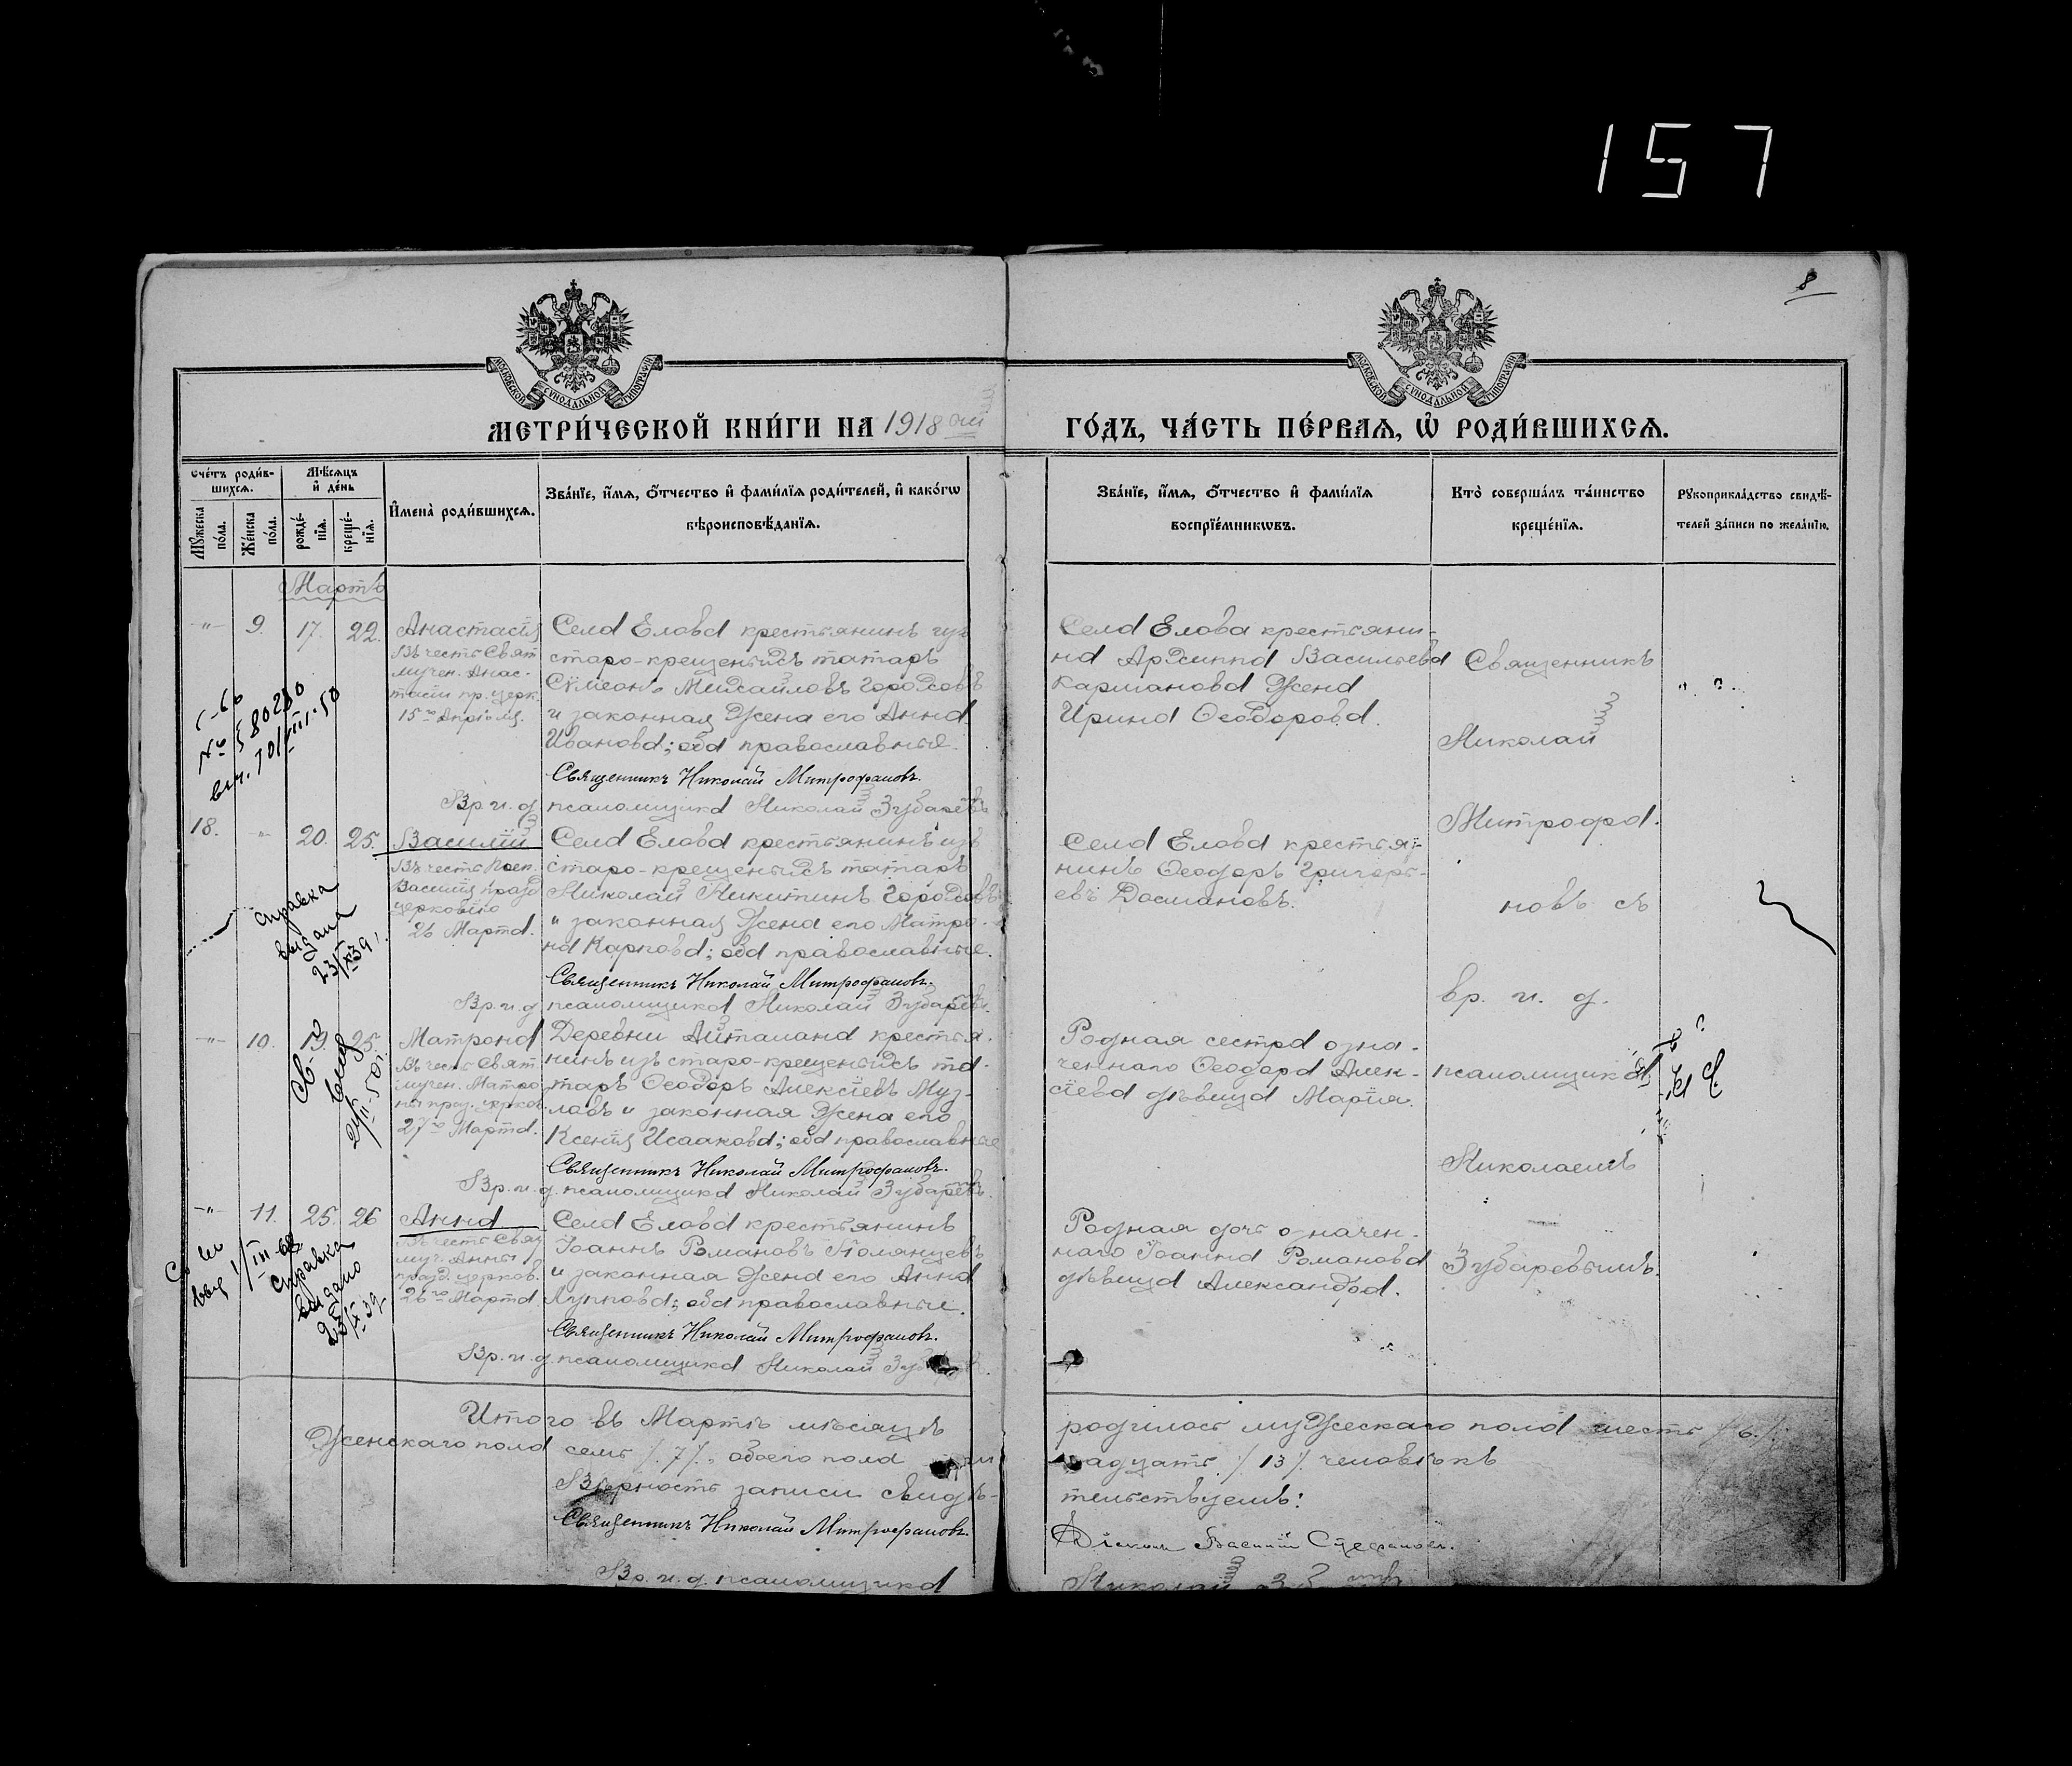 157
8
МОСКОВСКОЙ СѴНОДАЛЬНОЙ ТИПОГРАФІИ
МОСКОВСКОЙ СѴНОДАЛЬНОЙ ТИПОГРАФІИ
МЕТРИ́ЧЕСКОЙ КНИ́ГИ НА 1918 ый
ГО́ДЪ, ЧА́СТЬ ПЕ́РВАѦ, Ѡ РОДИ́ВШИХСѦ.
Сче́тъ роди́в-
шихсѧ.
Мѣ́сѧцъ
и҆ де́нь
Мꙋ́жеска по́ла.
Же́нска по́ла.
рожде́-
нїѧ.
креще́-
нїѧ.
И҆мена̀ роди́вшихсѧ.
Зва́нїе, и҆́мѧ, ѻ҆́тчество и҆ фами́лїѧ роди́телей, и҆ како́гѡ
вѣроисповѣ́данїѧ.
Зва́нїе, и҆́мѧ, ѻ҆́тчество и҆ фами́лїѧ
воспрїе́мникѡвъ.
Кто̀ соверша́лъ та́инство
креще́нїѧ.
Рꙋкоприкла́дство свидѣ́-
телей за́писи по жела́нїю.
Мартъ
-"- 9. 17. 22.
Анастасія
Въ честь Свят
мучен. Анас-
тасіи пр. церк.
15го Апрѣля.
Села Елова крестьянинъ изъ
старо-крещеныхъ татаръ
Сѵмеонъ Михайловъ Городсовъ
и законная жена его Анна
Иванова; оба православные.
Священникъ Николай Митрофановъ.
Вр. и. д. псаломщика Николай Зубаревъ
Села Елова крестьяни-
на Архипа Васильева
Карманова жена
Ирина Ѳеодорова.
Священникъ
Николай
Митрофа-
новъ съ
вр. и. д.
псаломщика
Николаемъ
Зубаревымъ.
18. -"- 20. 25.
Василій
Въ честь Преп.
Василія празд
церковію
26 Марта.
Села Елова крестьянинъ изъ
старо-крещеныхъ татаръ
Николай Никитинъ Городсовъ
и законная жена его Матро-
на Карпова; оба православные.
Священникъ Николай Митрофановъ.
Вр. и. д. псаломщика Николай Зубаревъ.
Села Елова крестья-
нинъ Ѳеодоръ Григорь-
евъ Досмановъ.
справка
выдана
-"- 10. 19. 25.
Матрона
Въ честь Свят.
мучен. Матро
ны праз. церков.
27го Марта.
Деревни Айталана крестья-
нинъ изъ старо-крещеныхъ та-
таръ Ѳеодоръ Алексіевъ Муз-
лавъ и законная жена его
Ксенія Исаакова; оба православные
Священникъ Николай Митрофановъ.
Вр. и. д. псаломщика Николай Зубаревъ.
Родная сестра озна-
ченнаго Ѳеодора Алек-
сіева дѣвица Марія.
-"- 11. 25. 26
Анна
Въ честь Свят
муч. Анны
празд. церков.
26го Марта
Села Елова крестьянинъ
Іоаннъ Романовъ Полянцевъ
и законная жена его Анна
Луппова; оба православные.
Священникъ Николай Митрофановъ.
Вр. и. д. псаломщика Николай
Родная дочь означен-
наго Іоанна Романова
дѣвица Александра.
справка
выдано
Итого въ Мартѣ мѣсяцѣ
родилось мужескаго пола шесть /6/,
женскаго пола семь /7/, обоего пола
/13/ человѣкъ
Вѣрность записи свидѣ-
тельствуемъ:
Священникъ Николай Митрофановъ.
Діаконъ Василій Стефановъ.
Вр. и. д. псаломщика
Николай